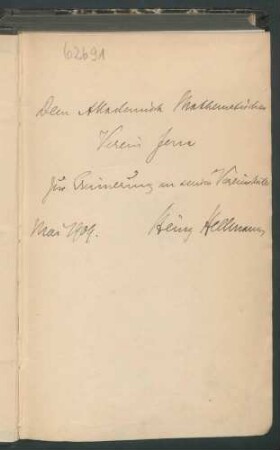 62691
Dem Akademisch Mathematischen
Verein Jena
zur Erinnerung an seinen
Mai 1909. Heinz Hellmann